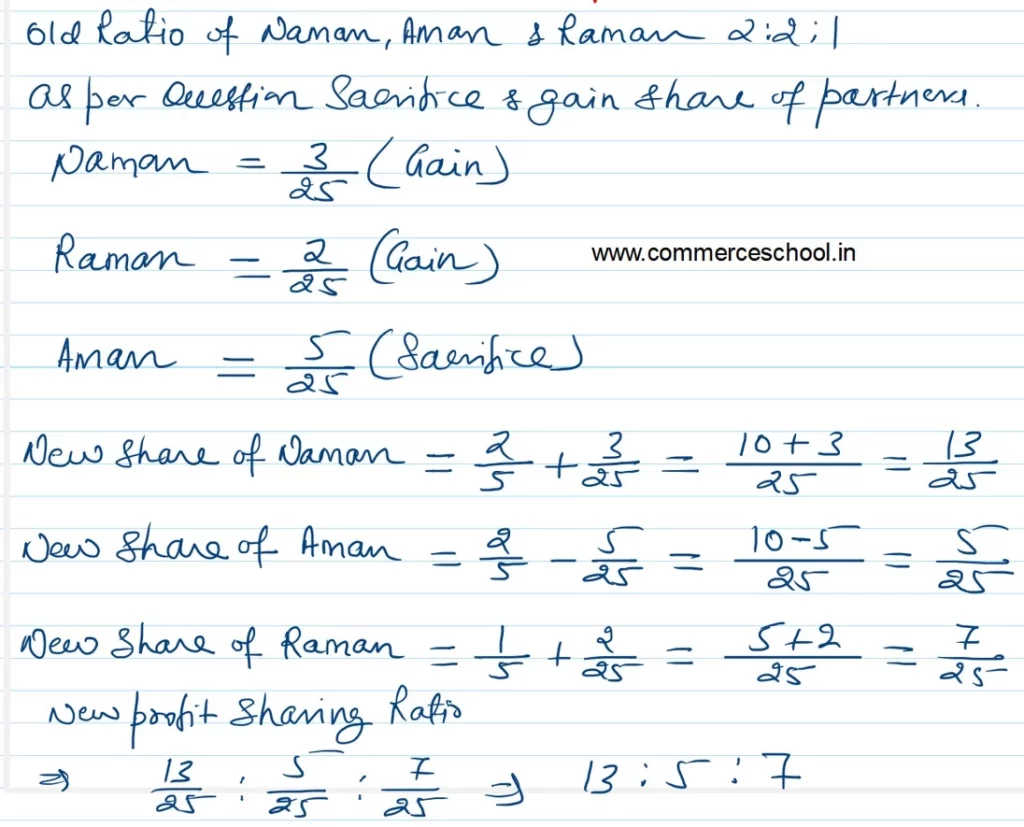 Old Ratio of Naman, Aman & Raman 2:2:1
as per Question Sacrifice & gain share of partners.
Naman = 3/25 (Gain)
Raman = 2/25 (Gain)
www.commerceschool.in
Aman = 5/25 (Sacrifice)
New Share of Naman = 2/5 + 3/25 = 10+3/25 = 13/25
New Share of Aman = 2/5 - 5/25 = 10-5/25 = 5/25
New Share of Raman = 1/5 + 2/25 = 5+2/25 = 7/25
New profit Sharing Ratio
⇒ 13/25 : 5/25 : 7/25 ⇒ 13 : 5 : 7